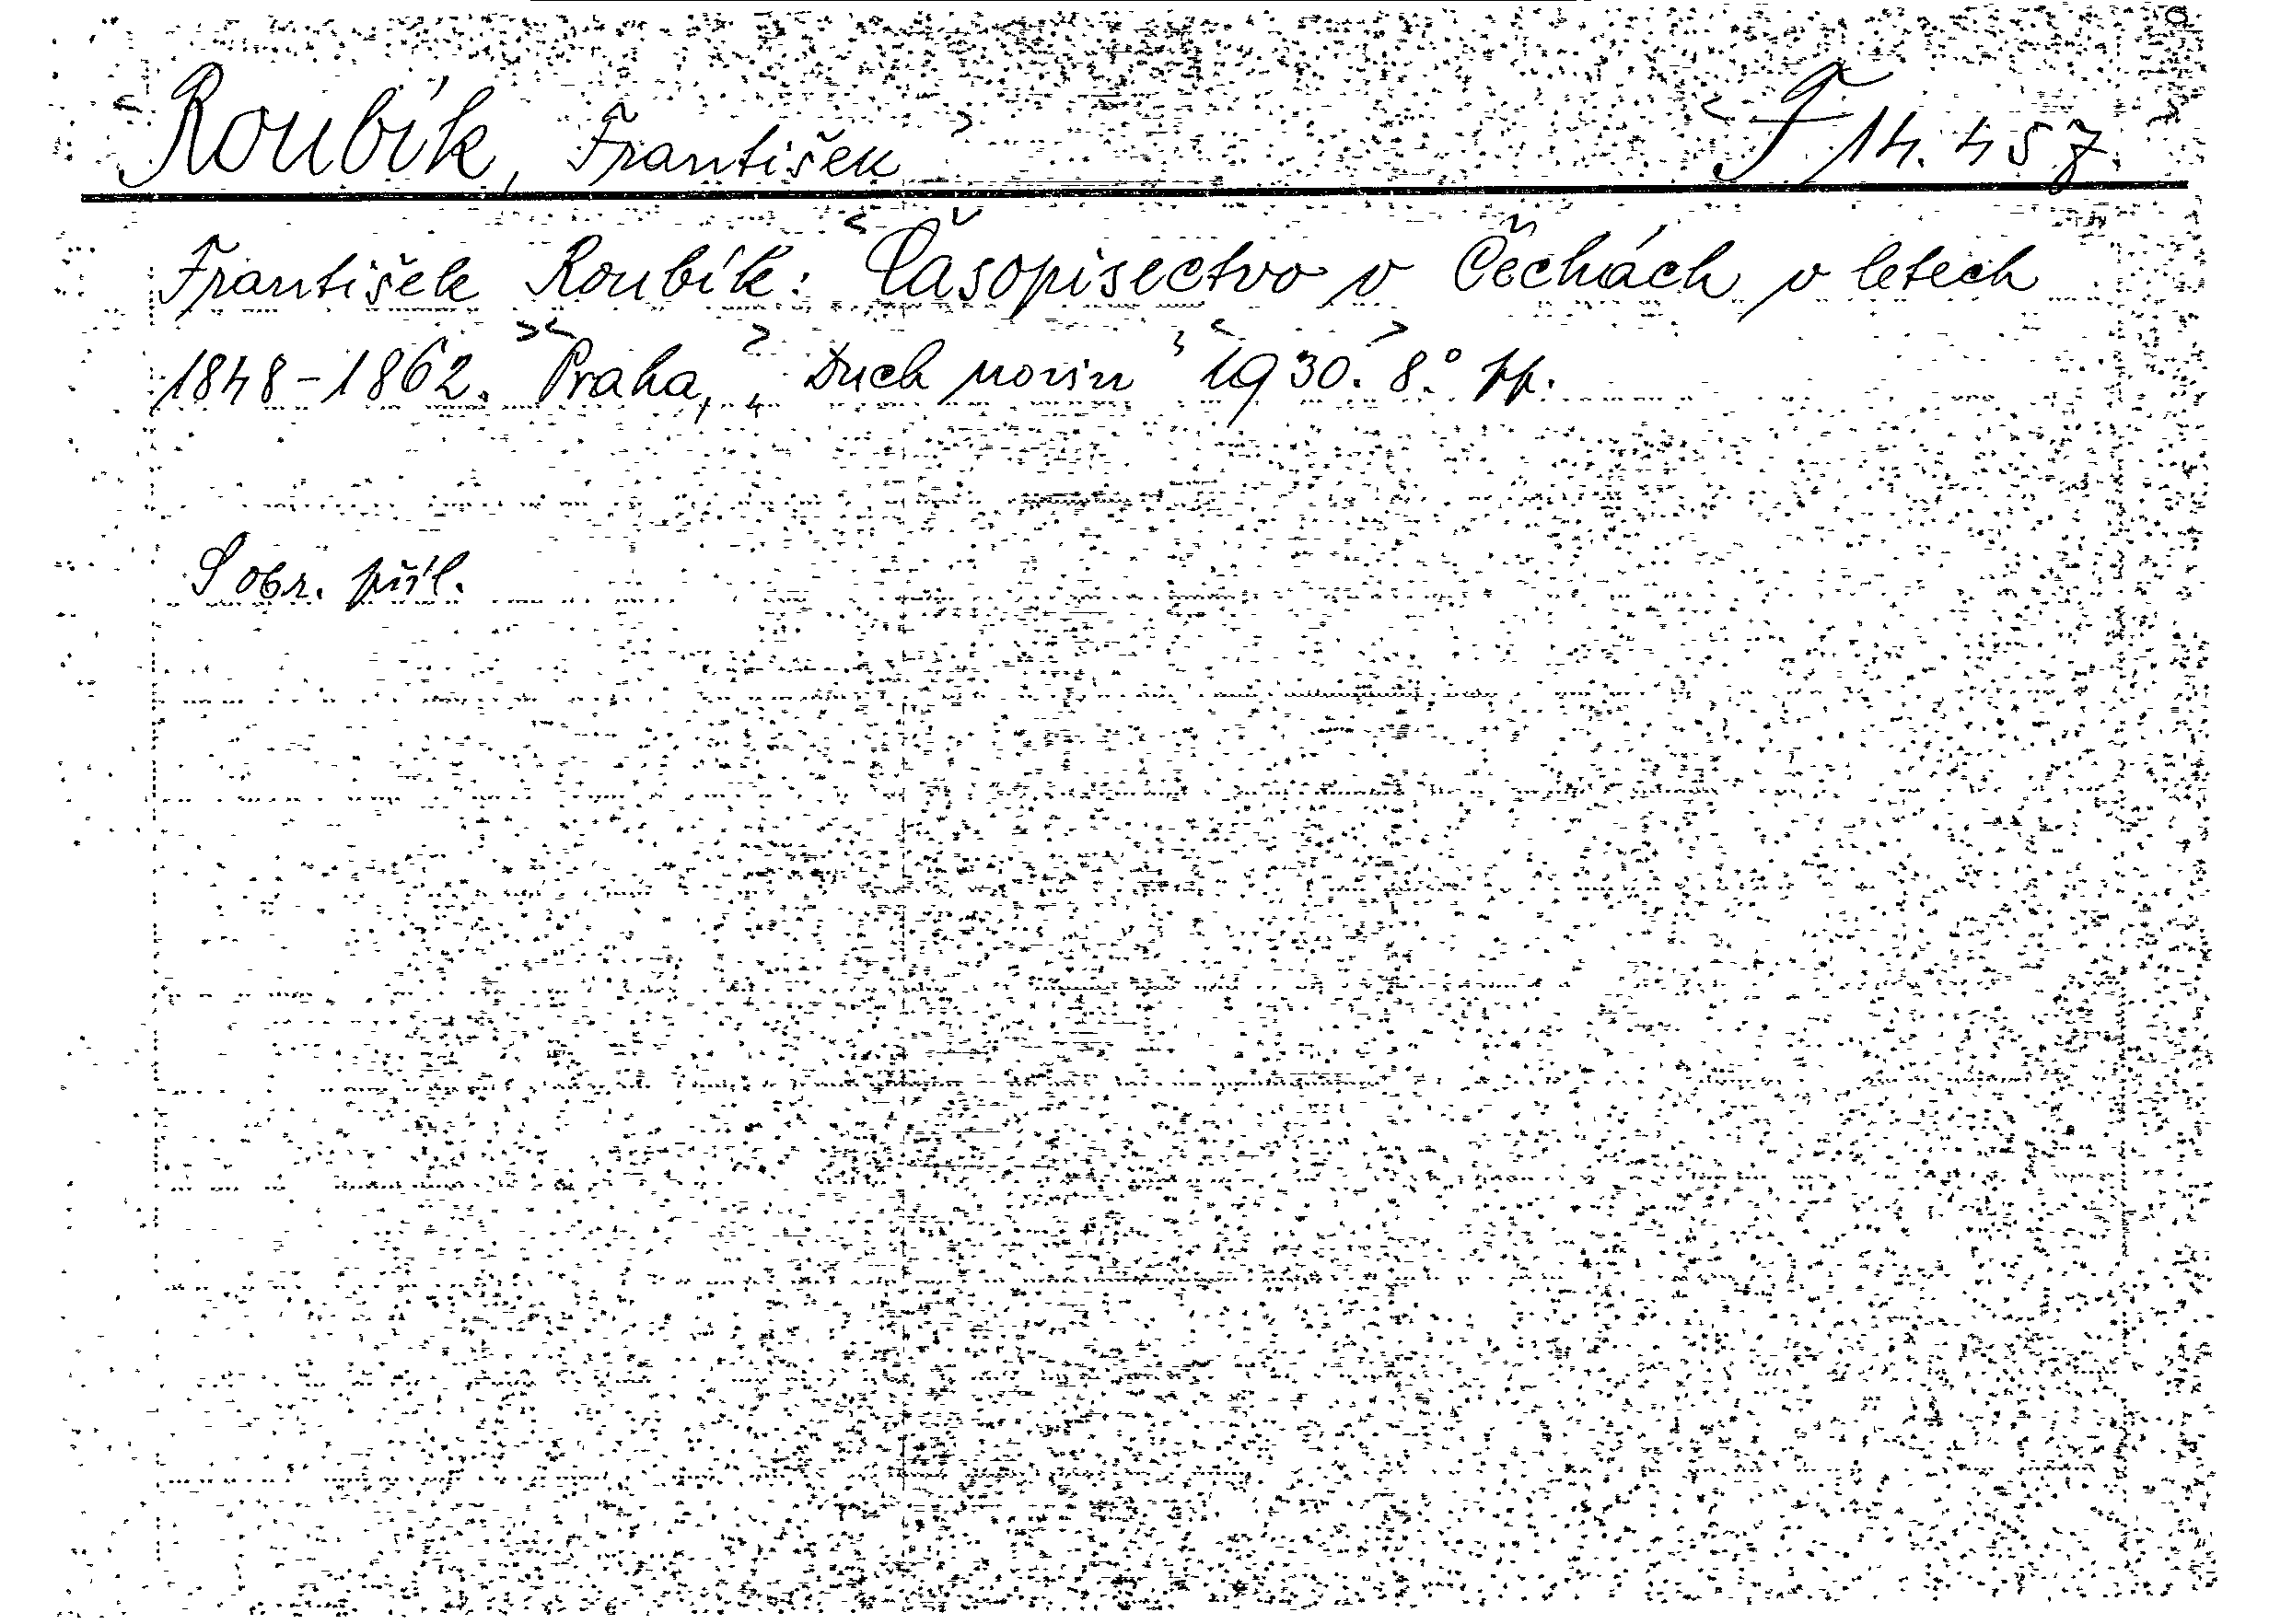 Roubík, František F 14.457.
František Roubík: Časopisectvo v Čechách v letech
1848-1862. Praha, „Duch novin“ 1930. 8.° pp.
S obr. příl.